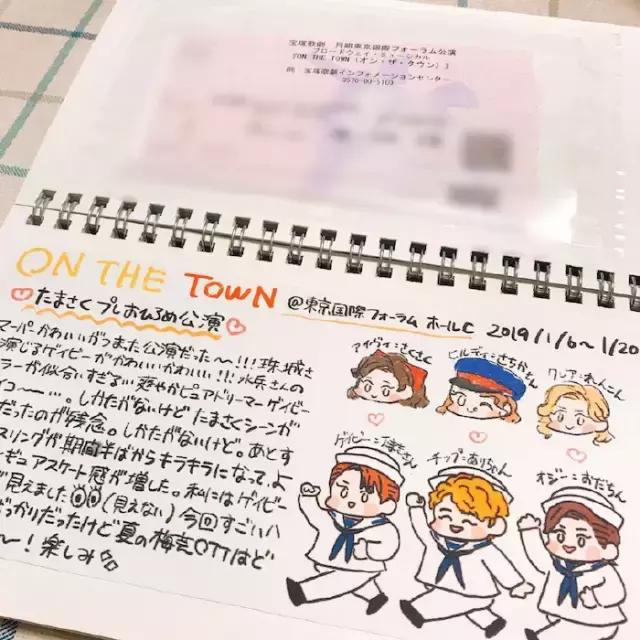 宝塚歌劇 月組東京国際フォーラム公演
ブロードウェイ・ミュージカル
『ON THE TOWN(オン・ザ・タウン)』
問 宝塚歌劇インフォメーションセンター
0570-00-5100
ON THE TOWN @東京国際フォーラム ホールC 2019/1/6~1/20
たまさくプレおひろめ公演
ーパーかわいいがつまった公演だった~!!! 珠城さ
演じるゲイビーがかわいいかわいい!!! 水兵さんの
ラーが似合いすぎる… 爽やかピュアドリーマーゲイビー
~…。しかたがないけど たまさくシーンが
だったのが残念。しかたがないけど。あとす
スリングが期間半ばからキラキラになって、よ
ギュアスケート感が増した。私にはゲイビー
見えました (見えない) 今回すごい
ばっかりだったけど 夏の梅芸OTTはど
~! 楽しみ
アイヴィ:さくさく
ヒルディ:さちかさん
クレア:れんこん
ゲイビー:珠城さん
チップ:ありちゃん
オジー:おだちん